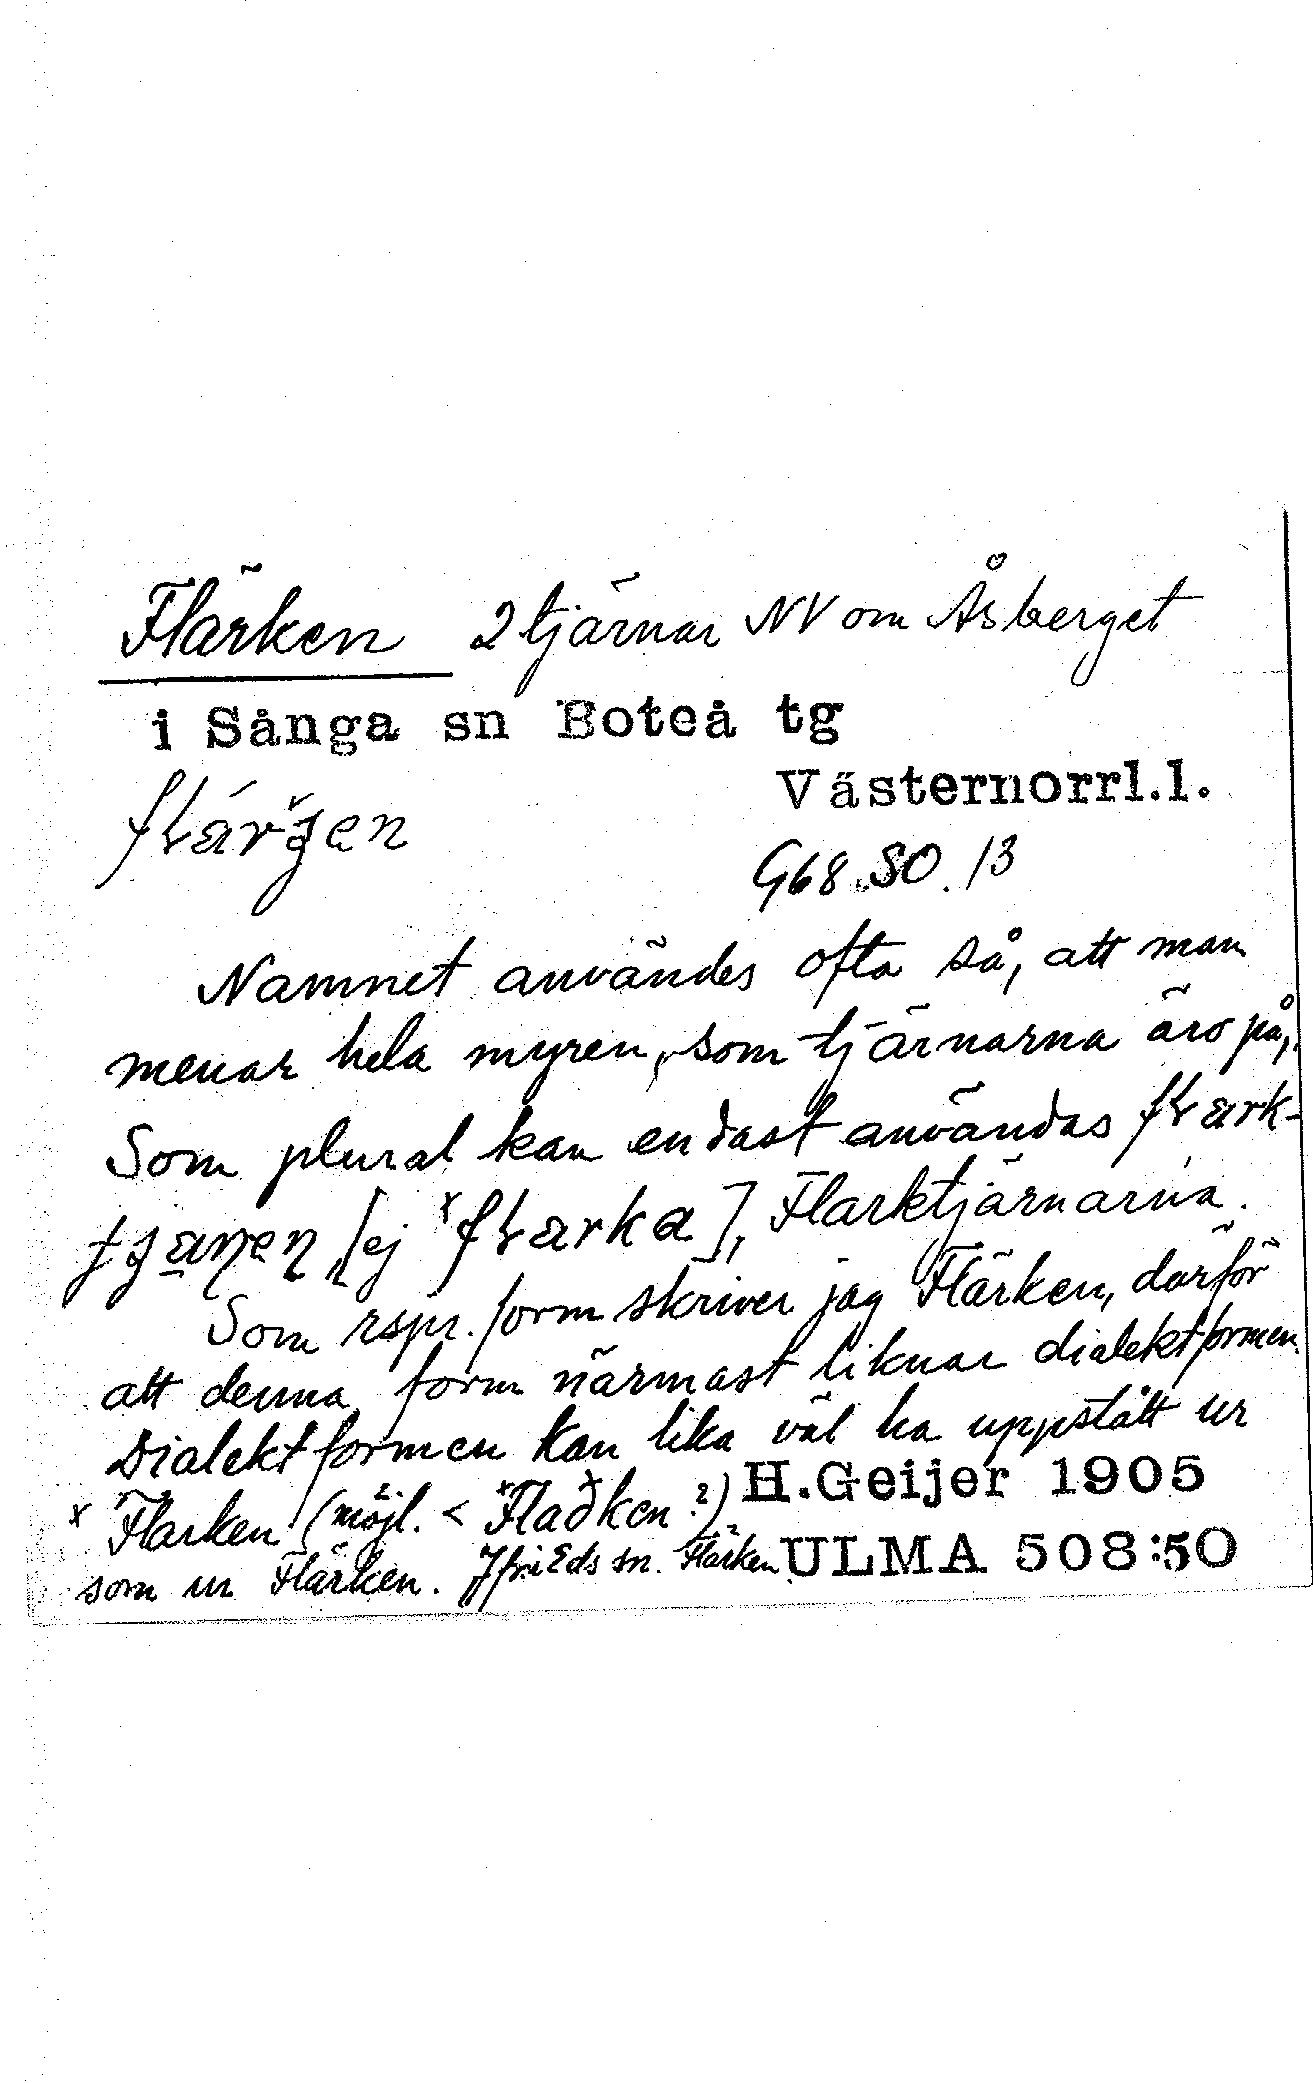 Flärken 2 tjärnar NV om Åsberget
i Sånga sn Boteå tg
Västernorrl.l.
G68.SO.13
Namnet användes ofta så, att man
menar hela myren, som tjärnarna äro på,
Som plural kan endast användas
[ej Flarktjärnarna.
Som rspr. form skriver jag Flärken, därför
att denna form närmast liknar dialektformen.
Dialektformen kan lika väl ha uppstått ur
ˣFlarken (möjl. < ˣFlaðken?) H.Geijer 1905
som ur Flärken. Jfr i Eds sn. Flärken ULMA 508:50